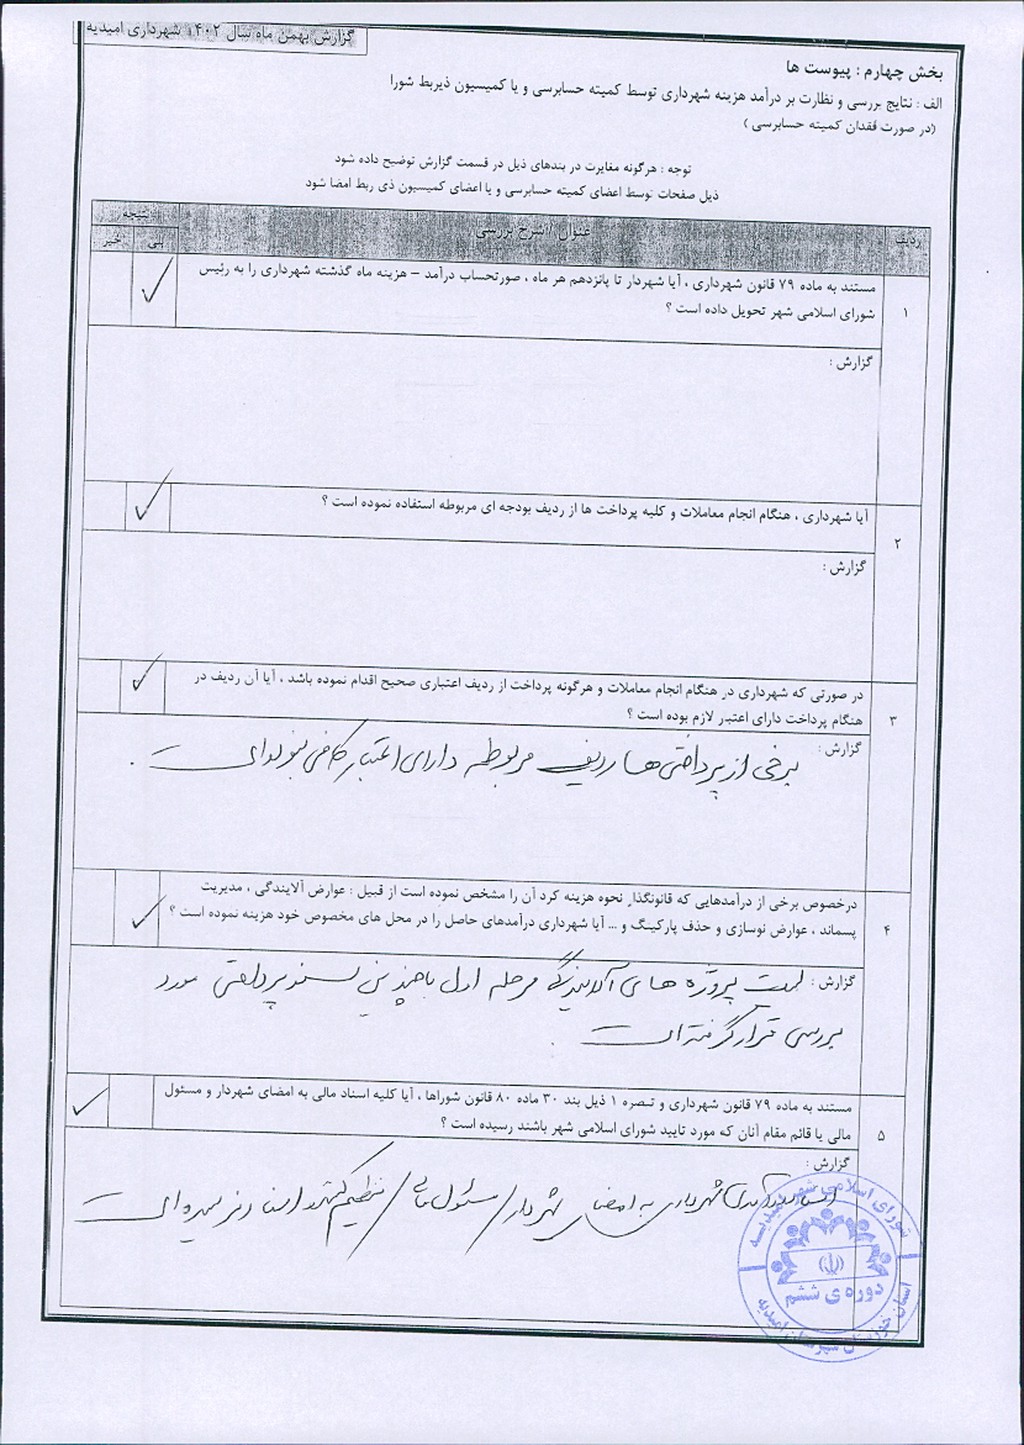 گزارش بهمن ماه سال ۱۴۰۲ شهرداری امیدیه
بخش چهارم : پیوست ها
الف : نتایج بررسی و نظارت بر درآمد هزینه شهرداری توسط کمیته حسابرسی و یا کمیسیون ذیربط شورا
(در صورت فقدان کمیته حسابرسی )
توجه : هرگونه مغایرت در بندهای ذیل در قسمت گزارش توضیح داده شود
ذیل صفحات توسط اعضای کمیته حسابرسی و یا اعضای کمیسیون ذی ربط امضا شود
ردیف
عنوان / شرح بررسی
نتیجه
بلی
خیر
۱
مستند به ماده ۷۹ قانون شهرداری ، آیا شهردار تا پانزدهم هر ماه ، صورتحساب درآمد – هزینه ماه گذشته شهرداری را به رئیس
شورای اسلامی شهر تحویل داده است ؟
✓
گزارش :
۲
آیا شهرداری ، هنگام انجام معاملات و کلیه پرداخت ها از ردیف بودجه ای مربوطه استفاده نموده است ؟
✓
گزارش :
۳
در صورتی که شهرداری در هنگام انجام معاملات و هرگونه پرداخت از ردیف اعتباری صحیح اقدام نموده باشد ، آیا آن ردیف در
هنگام پرداخت دارای اعتبار لازم بوده است ؟
✓
گزارش :
برخی از پرداختی ها ردیف مربوطه دارای اعتبار کافی نبوده است .
۴
درخصوص برخی از درآمدهایی که قانونگذار نحوه هزینه کرد آن را مشخص نموده است از قبیل : عوارض آلایندگی ، مدیریت
پسماند ، عوارض نوسازی و حذف پارکینگ و ... آیا شهرداری درآمدهای حاصل را در محل های مخصوص خود هزینه نموده است ؟
✓
گزارش : لیست پروژه های آلایندگی مرحله اول با چندین سند پرداختی مورد
بررسی قرار گرفته است .
۵
مستند به ماده ۷۹ قانون شهرداری و تبصره ۱ ذیل بند ۳۰ ماده ۸۰ قانون شوراها ، آیا کلیه اسناد مالی به امضای شهردار و مسئول
مالی یا قائم مقام آنان که مورد تایید شورای اسلامی شهر باشند رسیده است ؟
✓
گزارش :
شهرداری به امضای شهردار / مسئول مالی / تنظیم کننده اسناد رسیده است
شورای اسلامی شهر امیدیه
دوره ی ششم
استان خوزستان شهرستان امیدیه